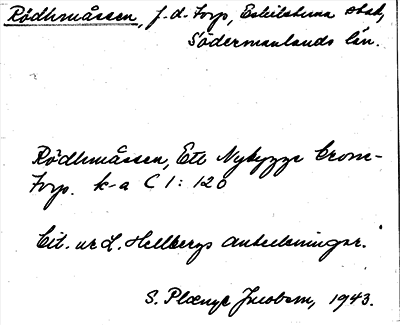 Rödhmåssen, f.d. torp, Eskilstuna stad,
Södermanlands län.
Rödhmåssen, Ett Nybygge Crono-
torp. k-a C I: 120
Cit. ur L. Hellbergs anteckningar.
S. Plænge Jacobson, 1943.